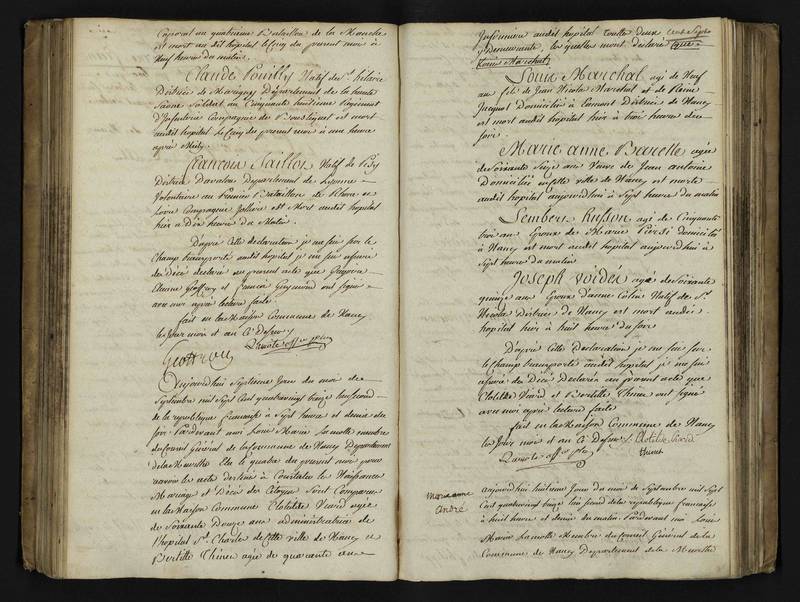 Caporal au quatrieme Bataillon de la Manche
est mort au dit hopital le cinq du present mois à
neuf heures du matin.
Claude Pouilly Natif de St. hilaire
District de Marigny Département de la haute
Saone Soldat au Cinquante huitieme Régiment
d'Infanterie Compagnie de est mort
audit hopital le Cinq du present mois à une heure
après Midy.
francois Saillot Natif de
District d'avalon Département de Lyonne
Volontaire au Premier Bataillon de Rhone et
Loire Compagnie est Mort audit hopital
hier à Dix heures du Matin.
D'après cette declaration je me suis sur le
champ transporté audit hopital je me suis assuré
des Décés declaré au present acte que
Etienne Geoffroy et francois ont signé
avec moi après lecture faite.
fait en la Maison Commune de Nancy
les jour mois et an Ci Dessus
Lamote off. p.
Geoffroy
Aujourdhui Septieme Jour du mois de
Septembre mil Sept Cent quatrevingt treize
de la republique française à Sept heures et demie du
soir Pardevant moi Louis Marie Lamothe membre
du Conseil Général de la Commune de Nancy Département
de la Meurthe Elu le quatre du present mois pour
recevoir les actes destinés à Constater les Naissances
Mariages et Décés des Citoyens Sont Comparues
en la Maison Commune Clotilde Viard agée
de Soixante Douze ans administratrice de
l'hopital St. Charles de Cette ville de Nancy et
Bertille Thirion agée de quarante ans
Infirmiere audit hopital toutes deux
y demeurante, lesquelles mont declaré que
Louis Marchal
Louis Marchal agé de Neuf
ans fils de Jean Nicolas Marchal et de Reine
Jacquot Domicilié à District de Nancy
est mort audit hopital hier à trois heures du
soir
Marie anne agée
de Soixante Seize ans Veuve de Jean antoine
Domiciliée en Cette ville de Nancy est morte
audit hopital aujourdhui à Sept heures du matin
Lembert husson agé de Cinquante
trois ans Epoux de Marie Pierson domicilié
à Nancy est mort audit hopital aujourdhui à
Sept heures du matin
Joseph Voidés agé de Soixante
quinze ans Epoux d'anne Colin Natif de St.
Nicolas District de Nancy est mort audit
hopital hier à huit heures du soir
D'après Cette Declaration je me suis sur
le Champ transporté audit hopital je me suis
assuré des Décés Declarés au present acte que
Clotilde Viard et Bertille Thirion ont signé
avec moi après lecture faite
fait en la Maison Commune de Nancy
les Jour mois et an Ci Dessus Clotilde Viard
Lamote off. p.
Marie anne
André
aujourdhui huitieme Jour du mois de Septembre mil Sept
Cent quatrevingt treize lan second de la république française
à huit heures et demie du matin Pardevant moi Louis
Marie Lamothe Membre du Conseil Général de la
Commune de Nancy Département de la Meurthe